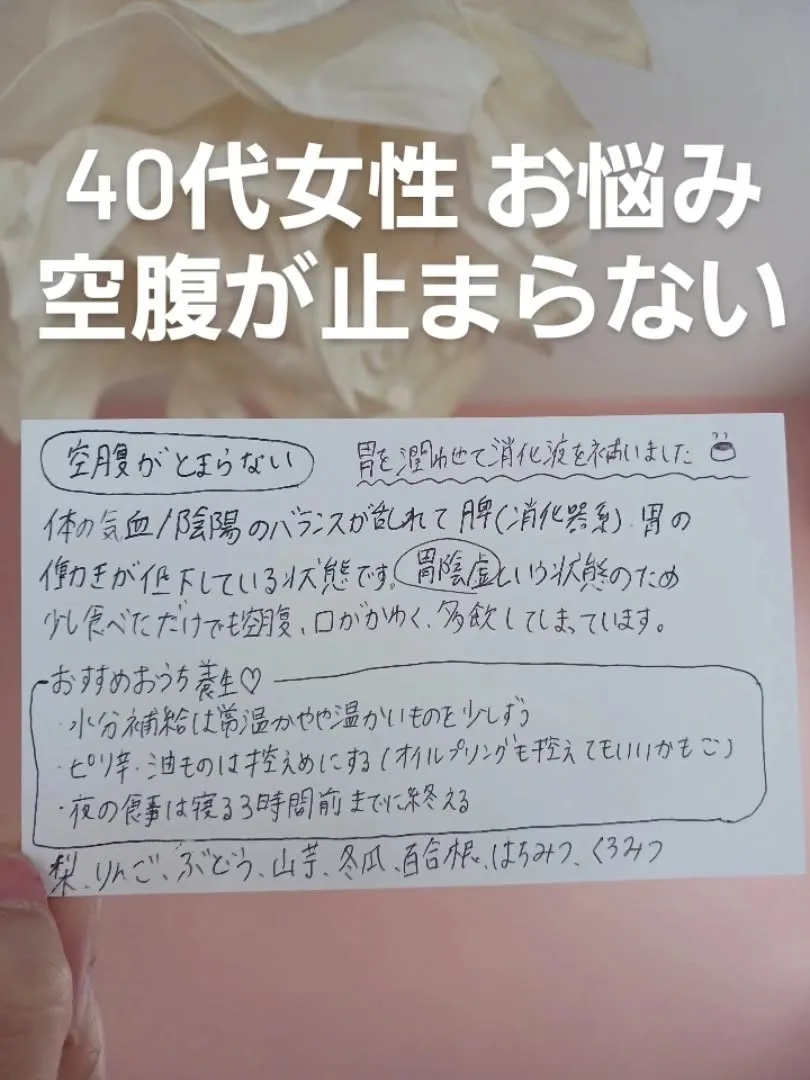 40代女性 お悩み
空腹が止まらない
空腹がとまらない
胃を潤わせて消化液を補いました
体の気血/陰陽のバランスが乱れて脾(消化器系)、胃の
働きが低下している状態です。胃陰虚という状態のため
少し食べただけでも空腹、口がかわく、多飲してしまっています。
おすすめおうち養生♡
・水分補給は常温かやや温かいものを少しずつ
・ピリ辛・油ものは控えめにする(オイルプリングも控えてもいいかもご)
・夜の食事は寝る3時間前までに終える
梨、りんご、ぶどう、山芋、冬瓜、百合根、はちみつ、くろみつ